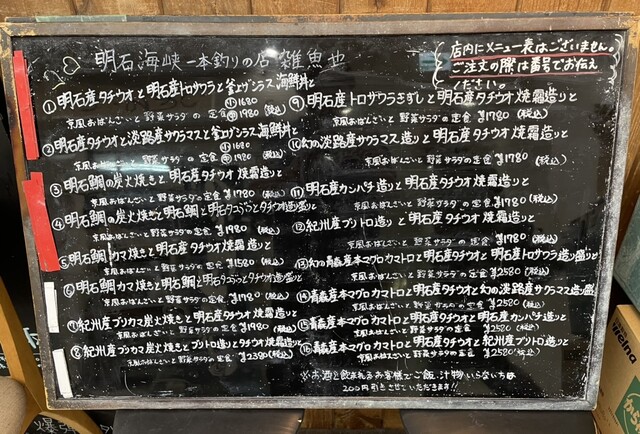 明石海峡一本釣りの店 雑魚や
店内にメニュー表はございません。
ご注文の際は番号でお伝え
ください。
①明石産タチウオと明石産トロサワラと釜上ゲシラス海鮮丼と
京風おばんざいと野菜サラダの定食 ㊥1680 ㊤1980(税込)
②明石産タチウオと淡路産サクラマスと釜上ゲシラス海鮮丼と
京風おばんざいと野菜サラダの定食 1680 1980(税込)
③明石鯛の炭火焼きと明石産タチウオ焼霜造りと
京風おばんざいと野菜サラダの定食 ¥1780(税込)
④明石鯛の炭火焼きと明石鯛と明石タコぶつとタチウオ造り盛りと
京風おばんざいと野菜サラダの定食 ¥1980(税込)
⑤明石鯛カマ焼きと明石産タチウオ焼霜造りと
京風おばんざいと野菜サラダの定食 ¥1580(税込)
⑥明石鯛カマ焼きと明石鯛と明石タコぶつとタチウオ造り盛りと
京風おばんざいと野菜サラダの定食 ¥1780(税込)
⑦紀州産ブリカマ炭火焼きと明石産タチウオ焼霜造りと
京風おばんざいと野菜サラダの定食 ¥1980(税込)
⑧紀州産ブリカマ炭火焼きとブリトロ造りとタチウオ造りと
京風おばんざいと野菜サラダの定食 ¥2380(税込)
⑨明石産トロサワラきずしと明石産タチウオ焼霜造りと
京風おばんざいと野菜サラダの定食 ¥1780(税込)
⑩幻の淡路産サクラマス造りと明石産タチウオ焼霜造りと
京風おばんざいと野菜サラダの定食 ¥1780(税込)
⑪明石産カンパチ造りと明石産タチウオ焼霜造りと
京風おばんざいと野菜サラダの定食 ¥1780(税込)
⑫紀州産ブリトロ造りと明石産タチウオ焼霜造りと
京風おばんざいと野菜サラダの定食 ¥1780(税込)
⑬幻の青森産本マグロカマトロと明石産タチウオと明石産トロサワラ造り盛りと
京風おばんざいと野菜サラダの定食 ¥2580(税込)
⑭青森産本マグロカマトロと明石産タチウオと幻の淡路産サクラマス造り盛と
京風おばんざいと野菜サラダの定食 ¥2580(税込)
⑮青森産本マグロカマトロと明石産タチウオと明石産カンパチ造りと
京風おばんざいと野菜サラダの定食 ¥2580(税込)
⑯青森産本マグロカマトロと明石産タチウオと紀州産ブリトロ造りと
京風おばんざいと野菜サラダの定食 ¥2580(税込)
※お酒を飲まれるお客様でご飯、汁物いらない方は
200円引きさせていただきます!!